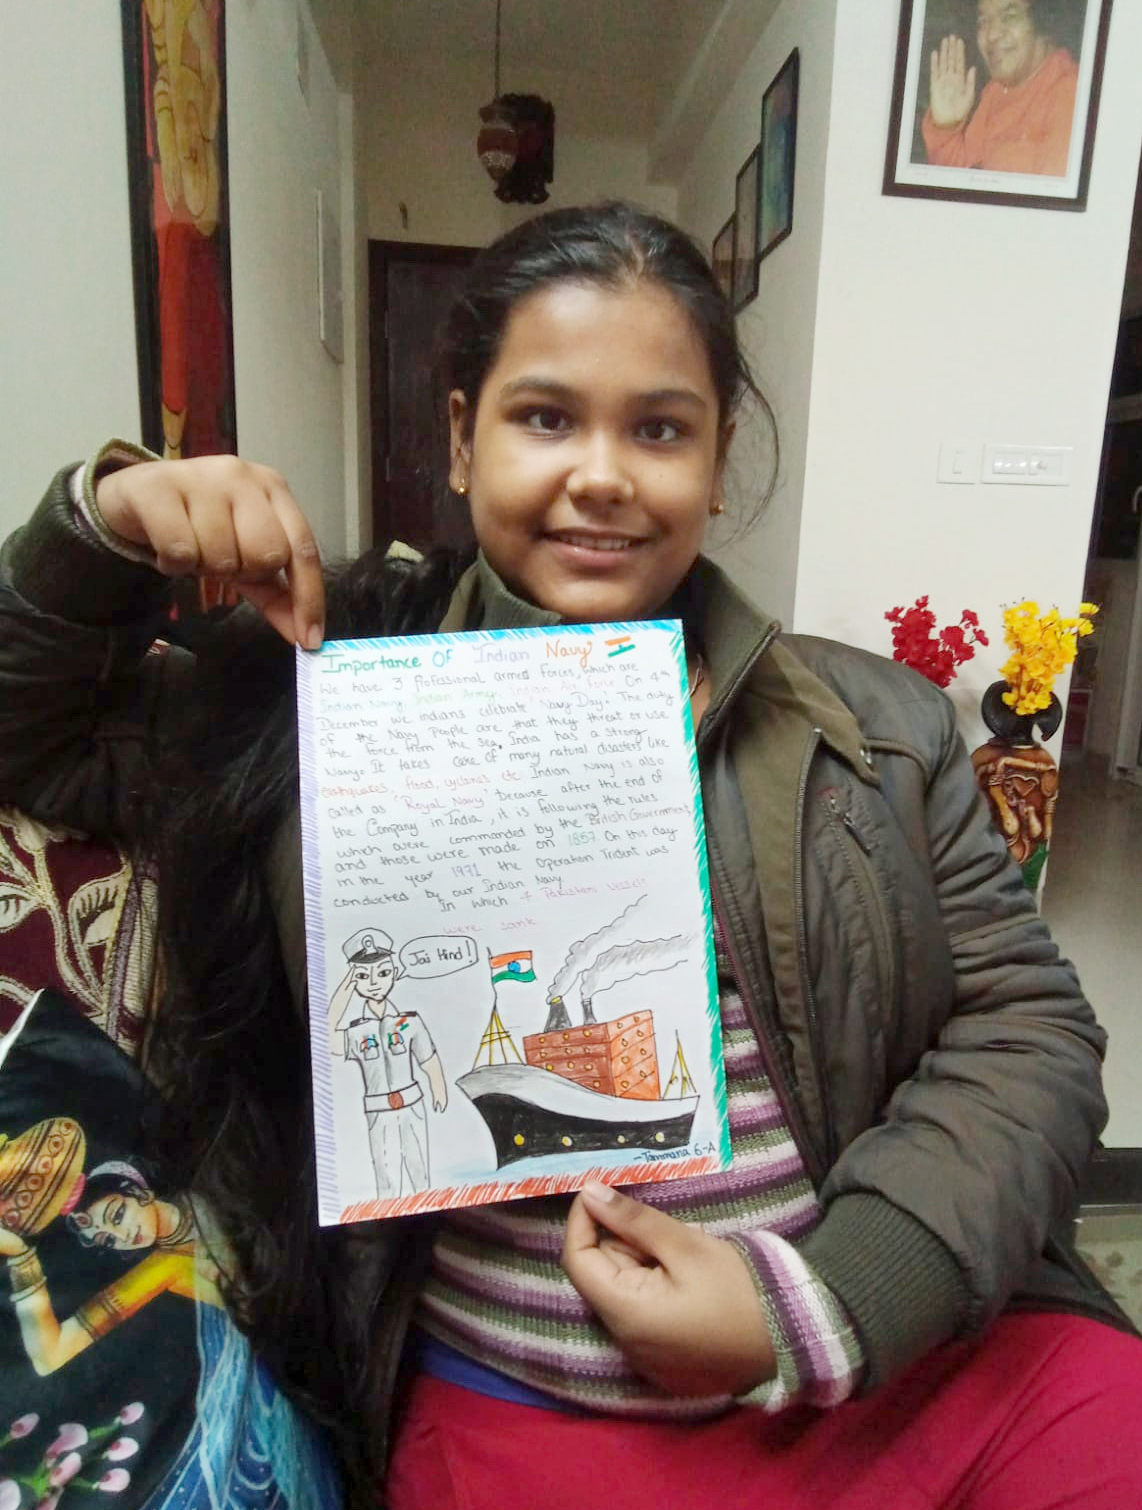 Importance Of Indian Navy
We have 3 Professional armed forces, which are
Indian Navy, Indian Army, Indian Air force. On 4th
December we indians celebrate 'Navy Day'. The duty
of the Navy People are that they threat or use
the force from the sea. India has a strong
Navy. It takes care of many natural disasters like
earthquakes, flood, cyclones etc. Indian Navy is also
called as 'Royal Navy' because after the end of
the Company in India, it is following the rules
which were commanded by the British Government
and those were made on 1857. On this day
in the year 1971 the Operation Trident was
conducted by our Indian Navy.
In which 7 Pakistani vessels
were sank
Jai Hind!
-Tammana 6-A